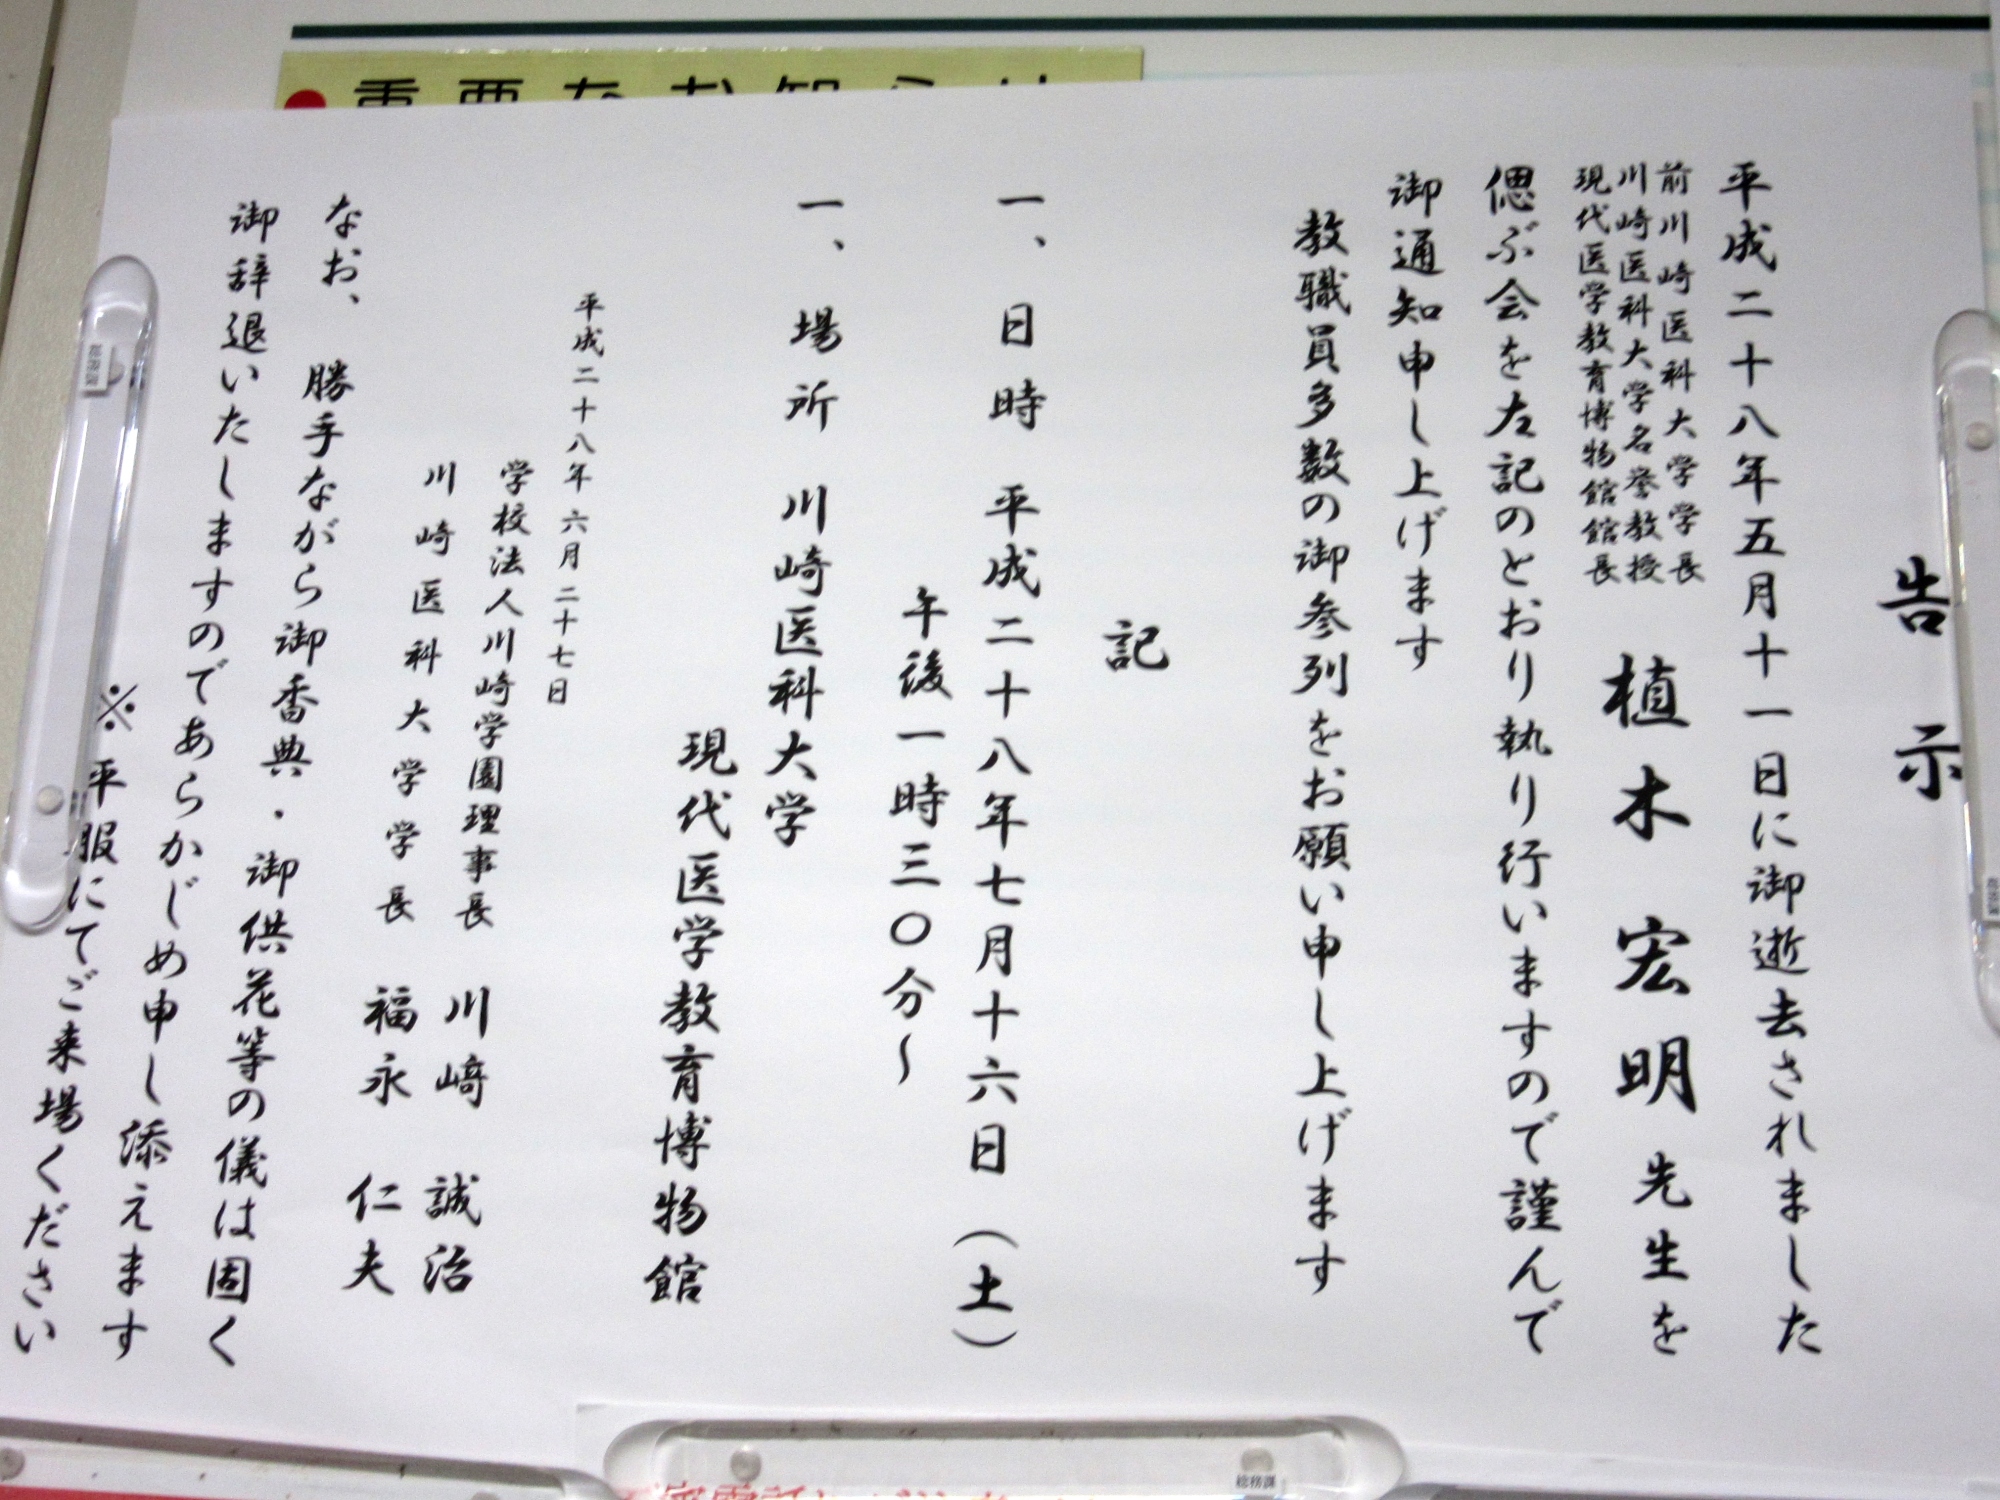 告示
平成二十八年五月十一日に御逝去されました
前川崎医科大学学長
川崎医科大学名誉教授
現代医学教育博物館館長
植木宏明先生を
偲ぶ会を左記のとおり執り行いますので謹んで
御通知申し上げます
教職員多数の御参列をお願い申し上げます
記
一、日時　平成二十八年七月十六日（土）
午後一時三〇分～
一、場所　川崎医科大学
現代医学教育博物館
平成二十八年六月二十七日
学校法人川崎学園理事長　川﨑　誠治
川崎医科大学学長　福永　仁夫
なお、勝手ながら御香典・御供花等の儀は固く
御辞退いたしますのであらかじめ申し添えます
※平服にてご来場ください
重要なお知らせ
総務課